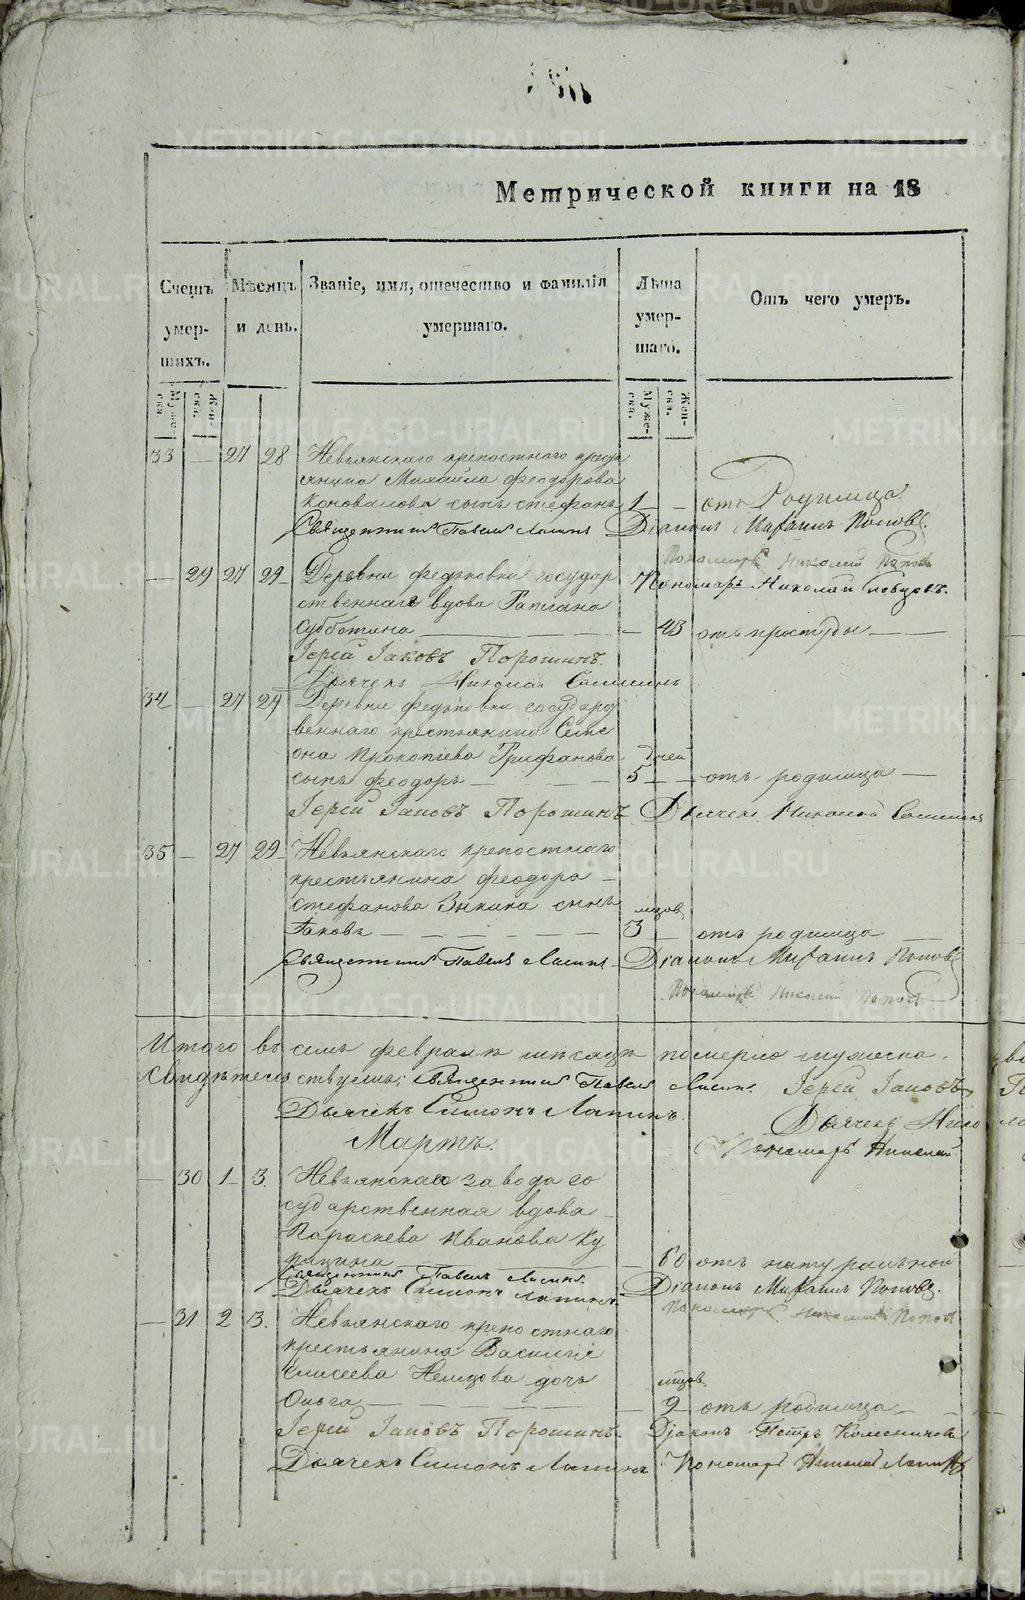 Метрической книги на 18
Счетъ умер- шихъ.
Мѣсяцъ и день.
Званіе, имя, отечество и фамилія умершаго.
Лѣта умер- шаго.
Отъ чего умеръ.
33 — 27 28 Невьянскаго крепостнаго крестьянина Михайла Феодорова
Коновалова сынъ Стефанъ 1 — отъ Родимца
Священникъ Павелъ Діаконъ Михаилъ Поповъ.
Пономарь Николай Поповъ
— 29 27 29 Деревни Федьковки государ
Пономарь Николай
ственнаго вдова
Субботина — 43 отъ простуды
Іерей Іаковъ Порошинъ.
Дьячекъ Николай
34 — 27 29 Деревни Федьковки государс
веннаго крестьянина Симе
она Прокопіева Трифанова дней
сынъ Феодоръ — 5 — отъ родимца
Іерей Іаковъ Порошинъ Дьячекъ Николай
35 — 27 29 Невьянскаго крепостнаго
крестьянина Феодора
Стефанова Зыкина сынъ мѣцов
Іаковъ — 3 — отъ родимца
Священникъ Павелъ Діаконъ Михаилъ Поповъ
Пономарь Николай Поповъ
Итого въ семъ Феврале месяцѣ померло мужеска
Свидѣтельствуемъ; Священникъ Павелъ Іерей Іаковъ
Дьячекъ Симонъ Лапинъ. Дьячекъ Нико
Мартъ. Пономарь Николай
— 30 1 3. Невьянскаго завода го
сударственная вдова
Параскева Иванова Ку
— 60 отъ натуральной
Священникъ Павелъ Діаконъ Михаилъ Поповъ.
Дьячекъ Симонъ Лапинъ Пономарь Николай Поповъ
— 31 2 3. Невьянскаго крепостнаго
крестьянина Василія
Елисеева Немцова дочь мѣцов
Ольга — 9 отъ родимца
Іерей Іаковъ Порошинъ. Діаконъ Петръ Колесниковъ
Дьячекъ Симонъ Лапинъ Пономарь Николай
METRIKI.GASO-URAL.RU